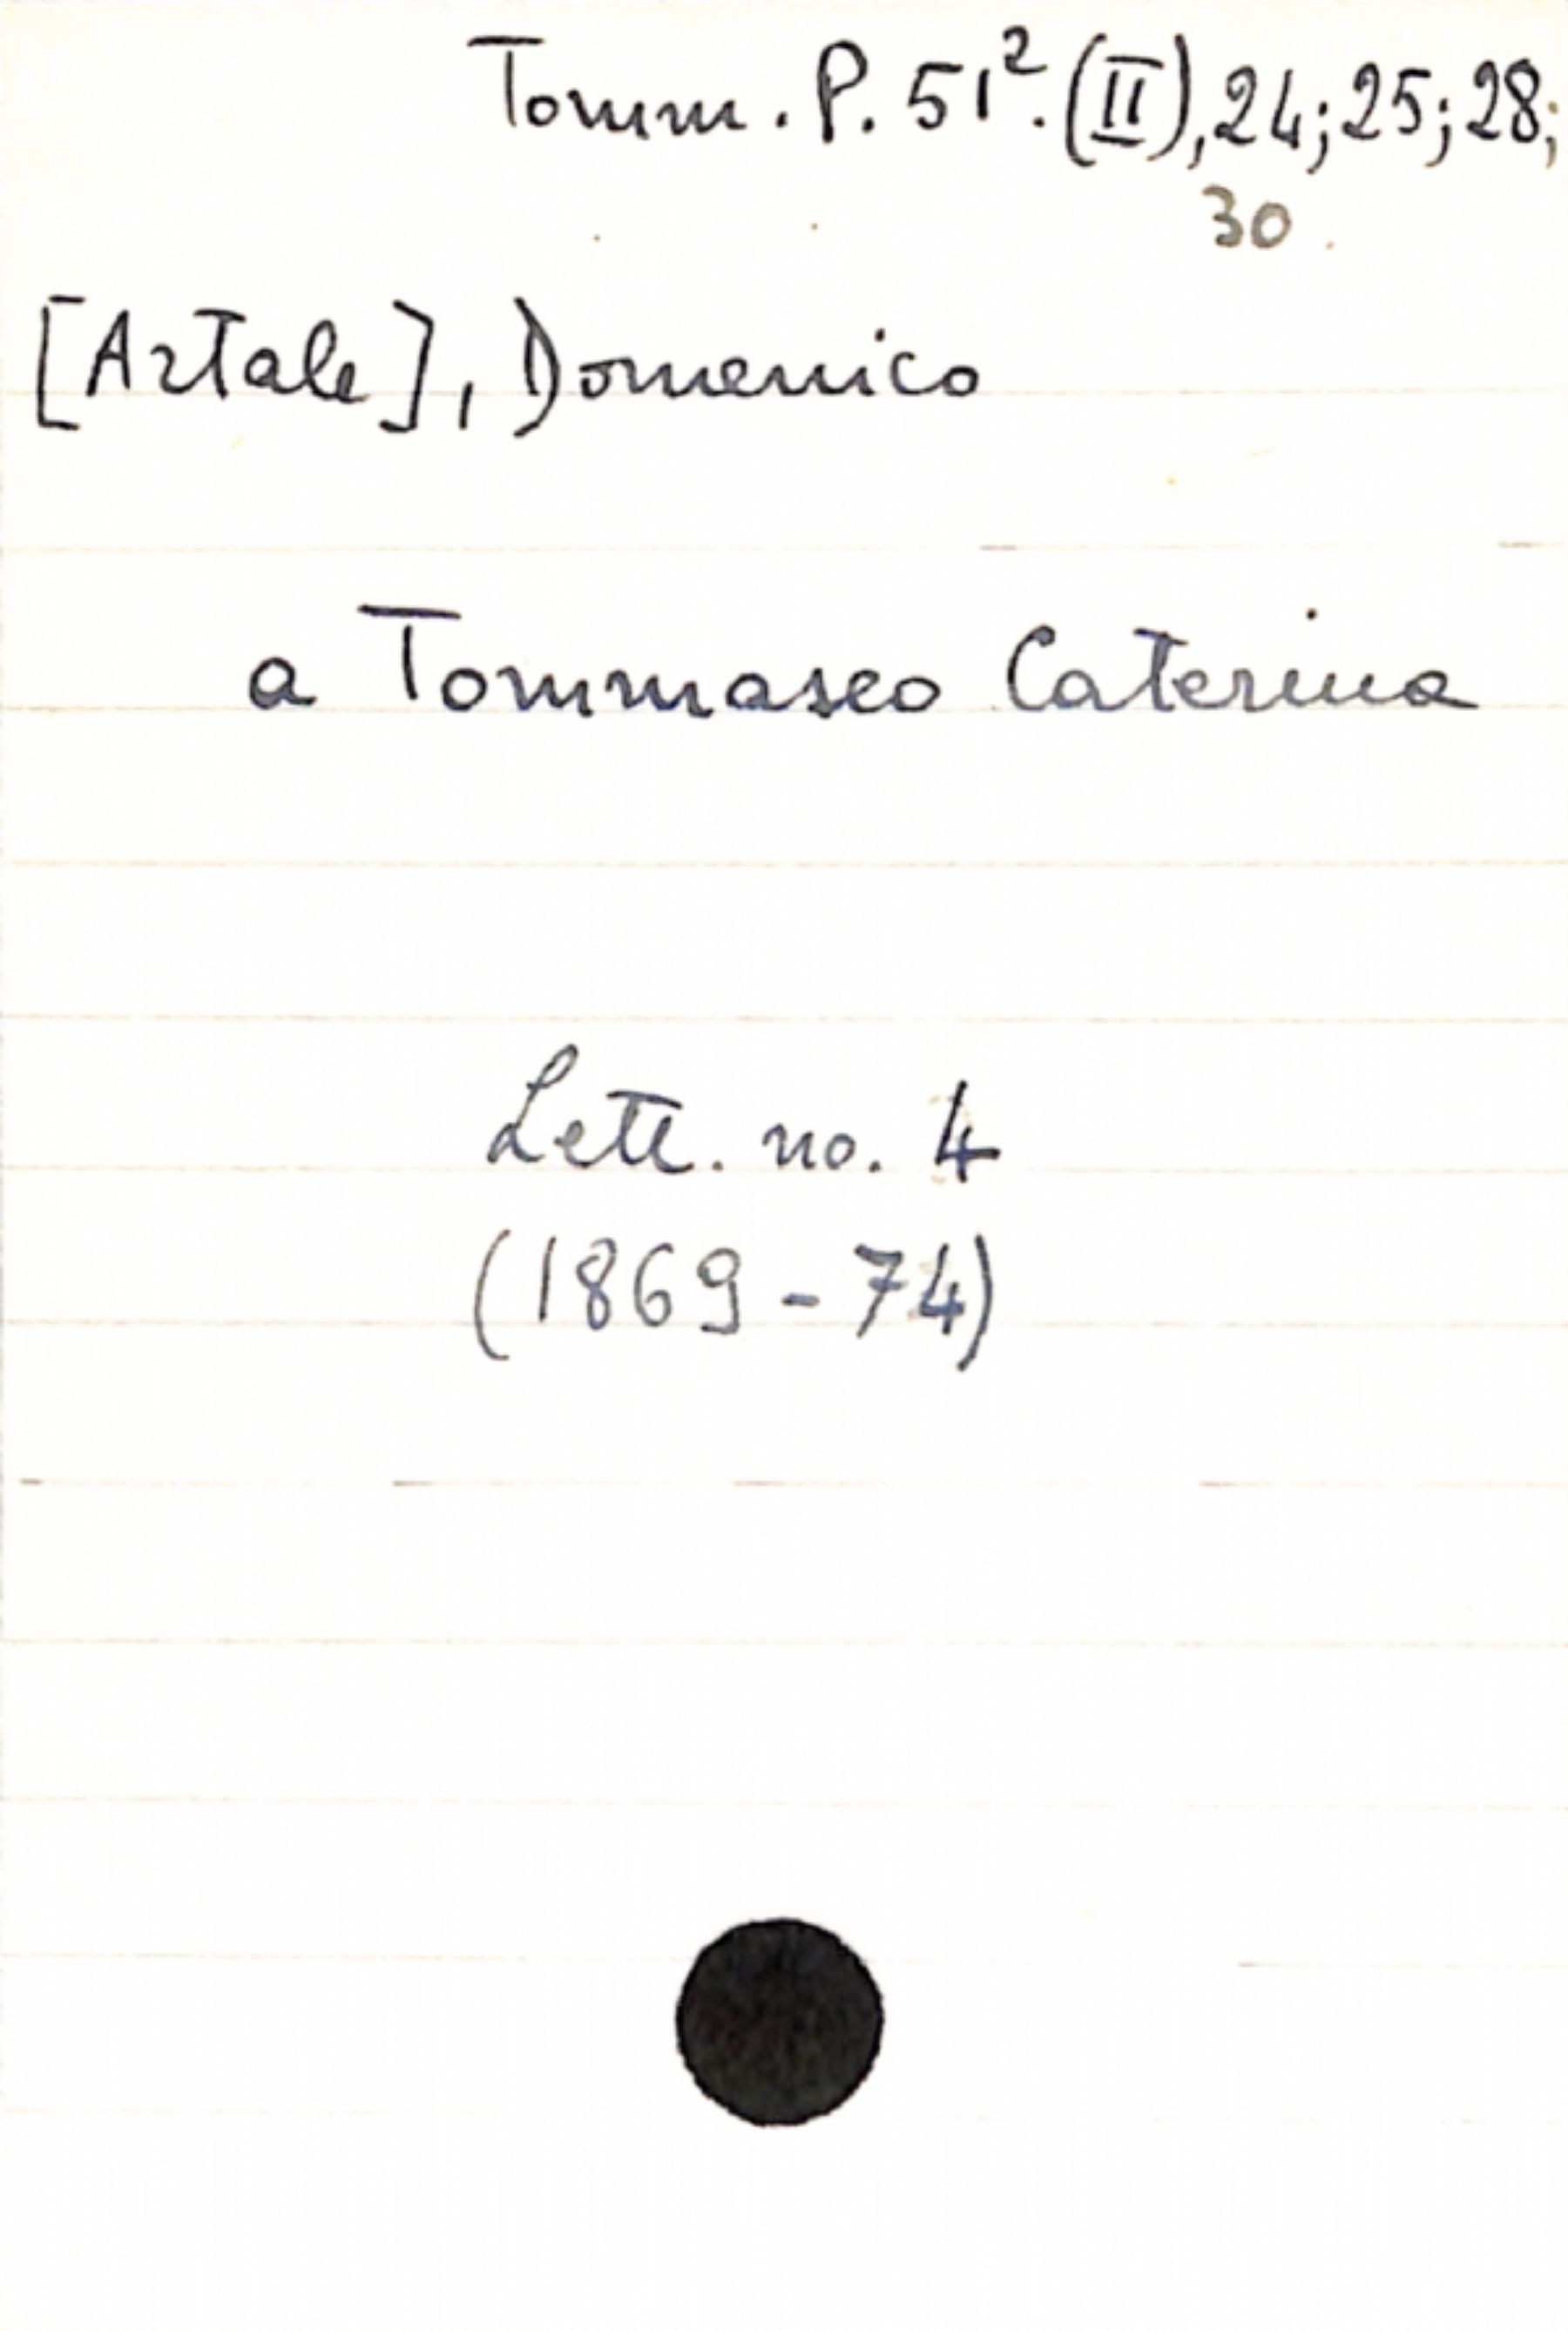 Tomm. P. 51². (II), 24; 25; 28;
30.
[Artale], Domenico
a Tommaseo Caterina
Lett. no. 4
(1869-74)